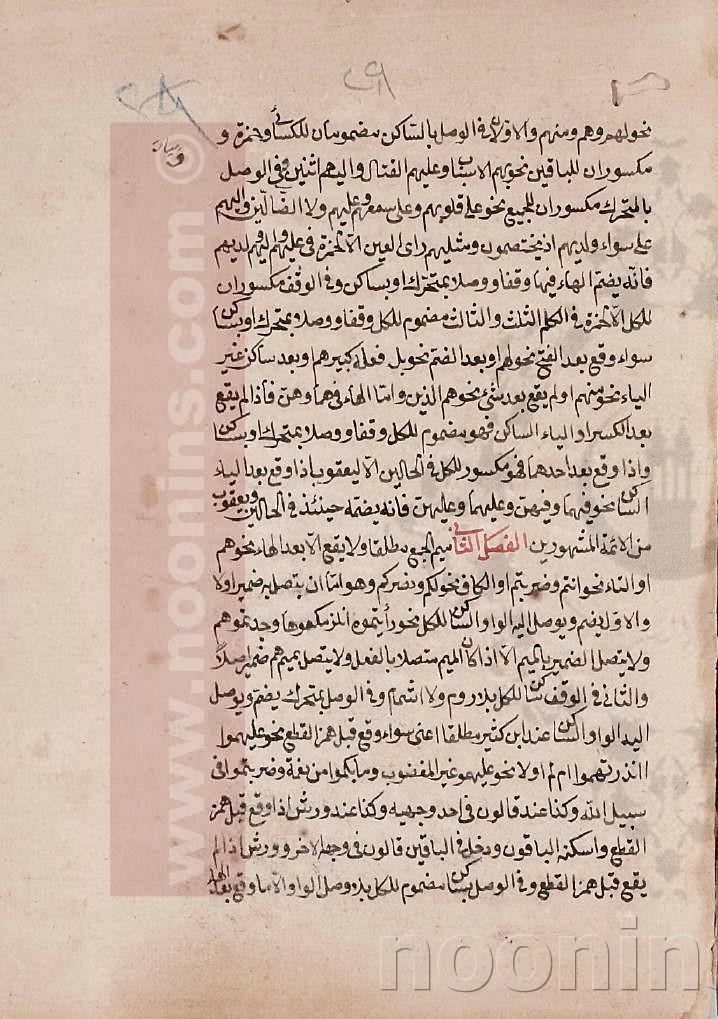 نحو لهم وهم ومنهم والاولان في الوصل بالساكن مضمومان للكسائي وحمزة و
مكسوران للباقين نحو بهم الاسباب وعليهم القتال واليهم اثنين وفي الوصل
بالمتحرك مكسوران للجميع نحو على قلوبهم وعلى سمعهم وعليهم ولا الضالين واليهم
على سواء ولديهم اذ يختصمون ومثليهم راى العين الا لحمزة في عليهم واليهم ولديهم
فانه يضم الهاء فيها وقفا ووصلا بمتحرك او بساكن وفي الوقف مكسوران
للكل الا لحمزة في الكلم الثلث والثالث مضموم للكل وقفا ووصلا بمتحرك او بساكن
سواء وقع بعد الفتح نحو لهم او بعد الضم نحو بل فعله كبيرهم او بعد ساكن غير
الياء نحو منهم او لم يقع بعد شيء نحو هم الذين واما الهاء في هما وهن فاذا لم يقع
بعد الكسر او الياء الساكن فهو مضموم للكل وقفا ووصلا بمتحرك او بساكن
واذا وقع بعد احدهما فهو مكسور للكل في الحالين الا ليعقوب اذا وقع بعد الياء
الساكن نحو فيهما وفيهن وعليهما وعليهن فانه يضمه حينئذ في الحالين ويعقوب
من الائمة المشهورين الفصل الثاني ميم الجمع مطلقا ولا يقع الا بعد الهاء نحو هم
او التاء نحو انتم وضربتم او الكاف نحو لكم ونصركم وهو اما ان يتصل به ضمير او لا
والاول يضم ويوصل اليه الواو الساكن للكل نحو رأيتموه انلزمكموها وجدتموهم
ولا يتصل الضمير بالميم الا اذا كان الميم متصلا بالفعل ولا يتصل بميم هم ضمير اصلا
والثاني في الوقف ساكن للكل بلا روم ولا اشمام وفي الوصل بمتحرك يضم ويوصل
اليه الواو الساكن عند ابن كثير مطلقا اعني سواء وقع قبل همز القطع نحو عليهموا
اانذرتهموا ام لم او لا نحو عليهمو غير المغضوب وما بكموا من نعمة وضربتموا في
سبيل الله وكذا عند قالون في احد وجهيه وكذا عند ورش اذا وقع قبل همز
القطع واسكنه الباقون ودخل في الباقين قالون في وجهه الاخر وورش اذا لم
يقع قبل همز القطع وفي الوصل بساكن مضموم للكل بلا وصل الواو الا ما وقع بعد الهاء
www.noonins.com ©
noonins